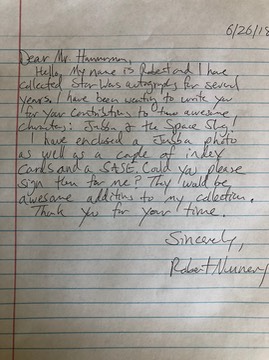 6/26/18
Dear Mr.
Hello, My name is Robert and I have
collected Star Wars autographs for several
years. I have been wanting to write you
for your contributions to two awesome
characters: Jabba & the Space Slug!
I have enclosed a Jabba photo
as well as a couple of index
cards and a SASE. Could you please
sign them for me? They would be
awesome additions to my collection.
Thank you for your time.
Sincerely,
Robert